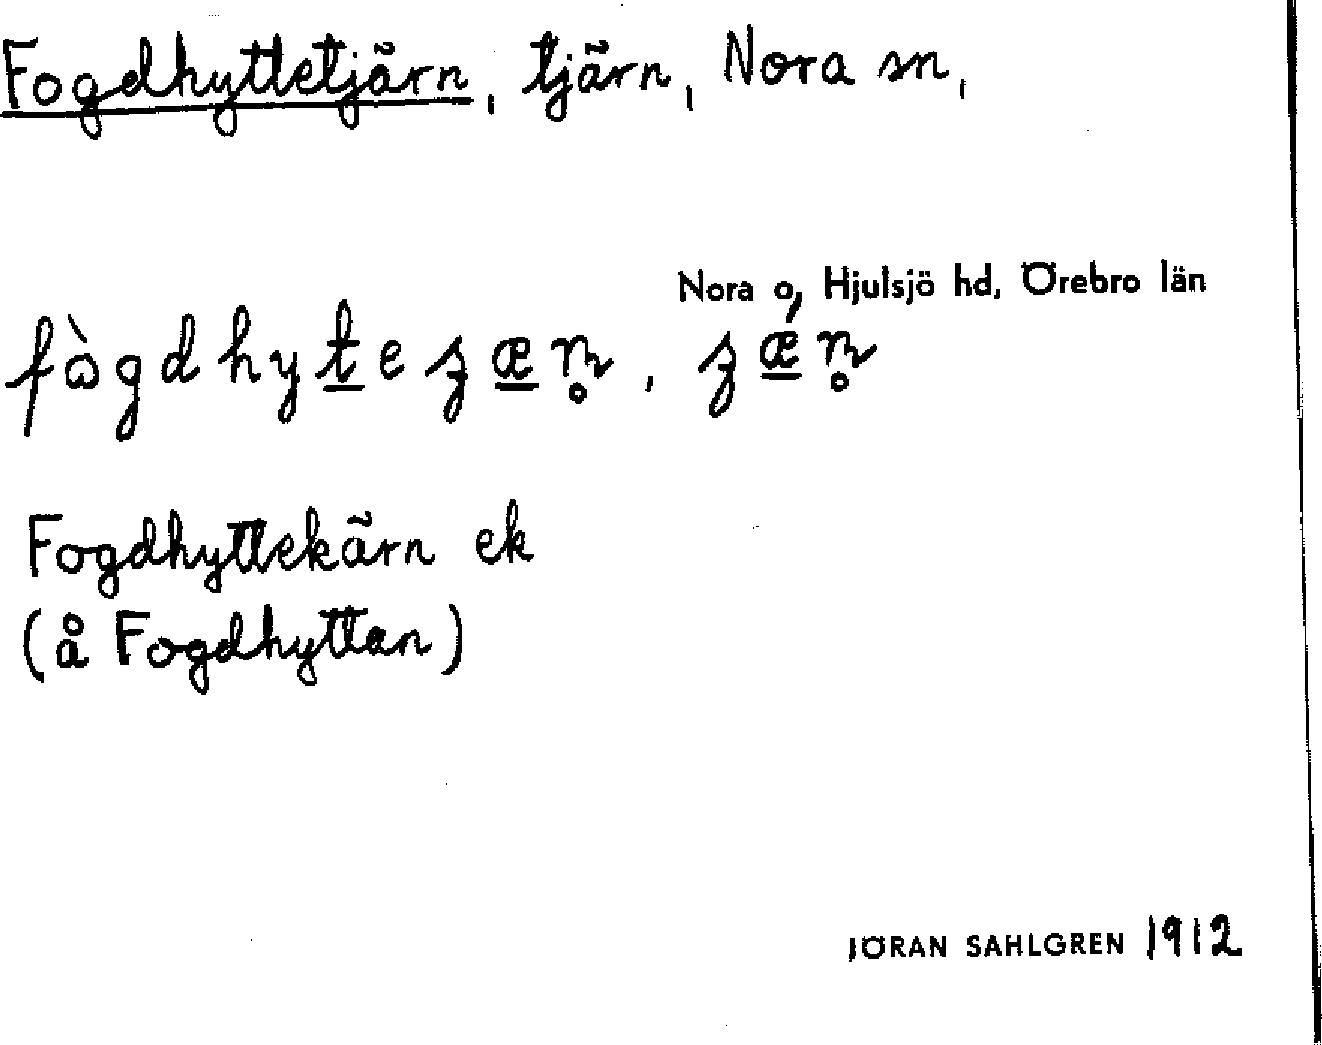 Fogdhyttetjärn, tjärn, Nora sn,
Nora o, Hjulsjö hd, Örebro län
Fogdhyttekärn ek
(å Fogdhyttan)
JÖRAN SAHLGREN 1912